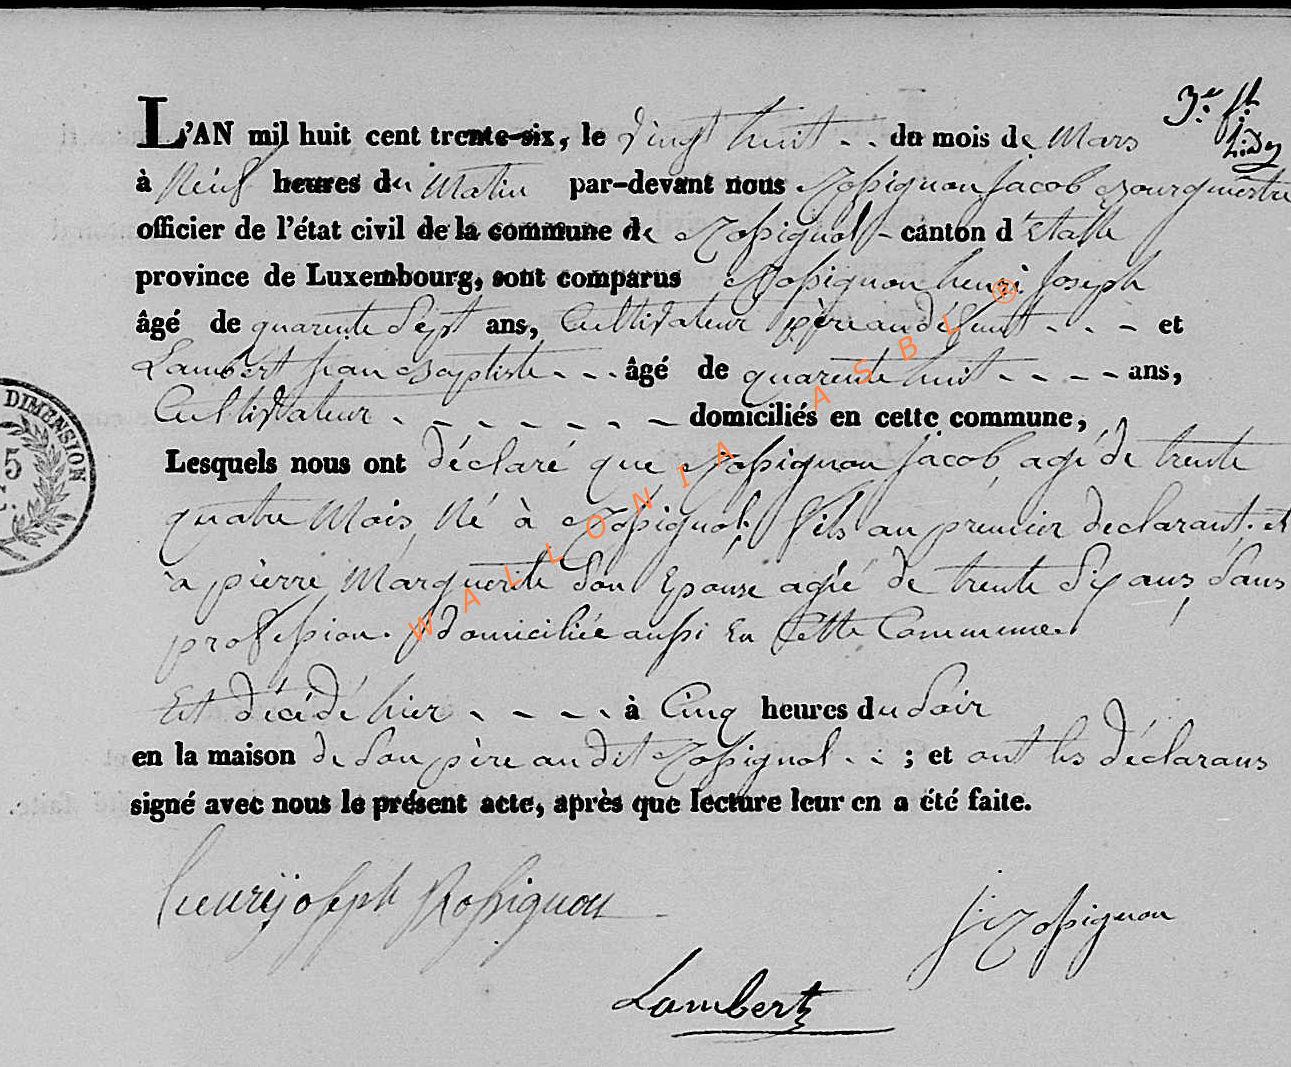 L'AN mil huit cent trente-six, le vingt huit - - du mois de Mars
3.e f.t
à Neuf heures du Matin par-devant nous Rossignon Jacob Bourgmestre
officier de l'état civil de la commune de Rossignol - canton d'Etalle
province de Luxembourg, sont comparus Rossignon henri Joseph
âgé de quarente Sept ans, Cultivateur père au défunt - - - et
Lambert Jean Baptiste - - - âgé de quarente huit - - - - ans,
Cultivateur - - - - - - - domiciliés en cette commune,
Lesquels nous ont déclaré que Rossignon Jacob, agé de trente
quatre Mois, Né à Rossignol; fils au premier declarant. et
à pierre Marguerite Son Epouse agée de trente Six ans, Sans
profession. domiciliée aussi En Cette Commune.
Est décédé hier - - - - à Cinq heures du Soir
en la maison de Son père au dit Rossignol - - ; et ont les déclarans
signé avec nous le présent acte, après que lecture leur en a été faite.
henrijoseph Rossignon
J: Rossignon
Lambert
DIMENSION
5
WALLONIA ASBL